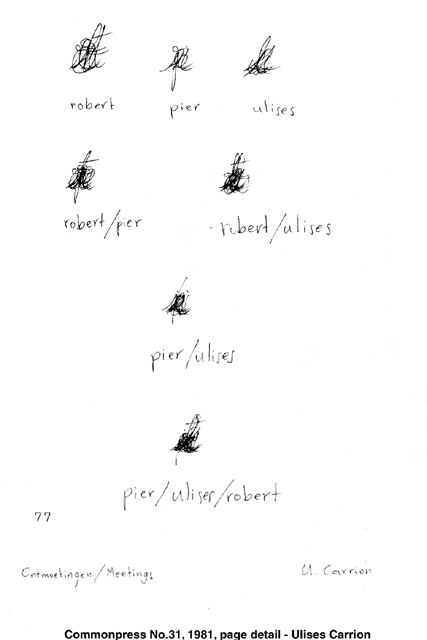 robert pier ulises
robert/pier robert/ulises
pier/ulises
pier/ulises/robert
77
Ontmoetingen/Meetings U. Carrión
Commonpress No.31, 1981, page detail - Ulises Carrion